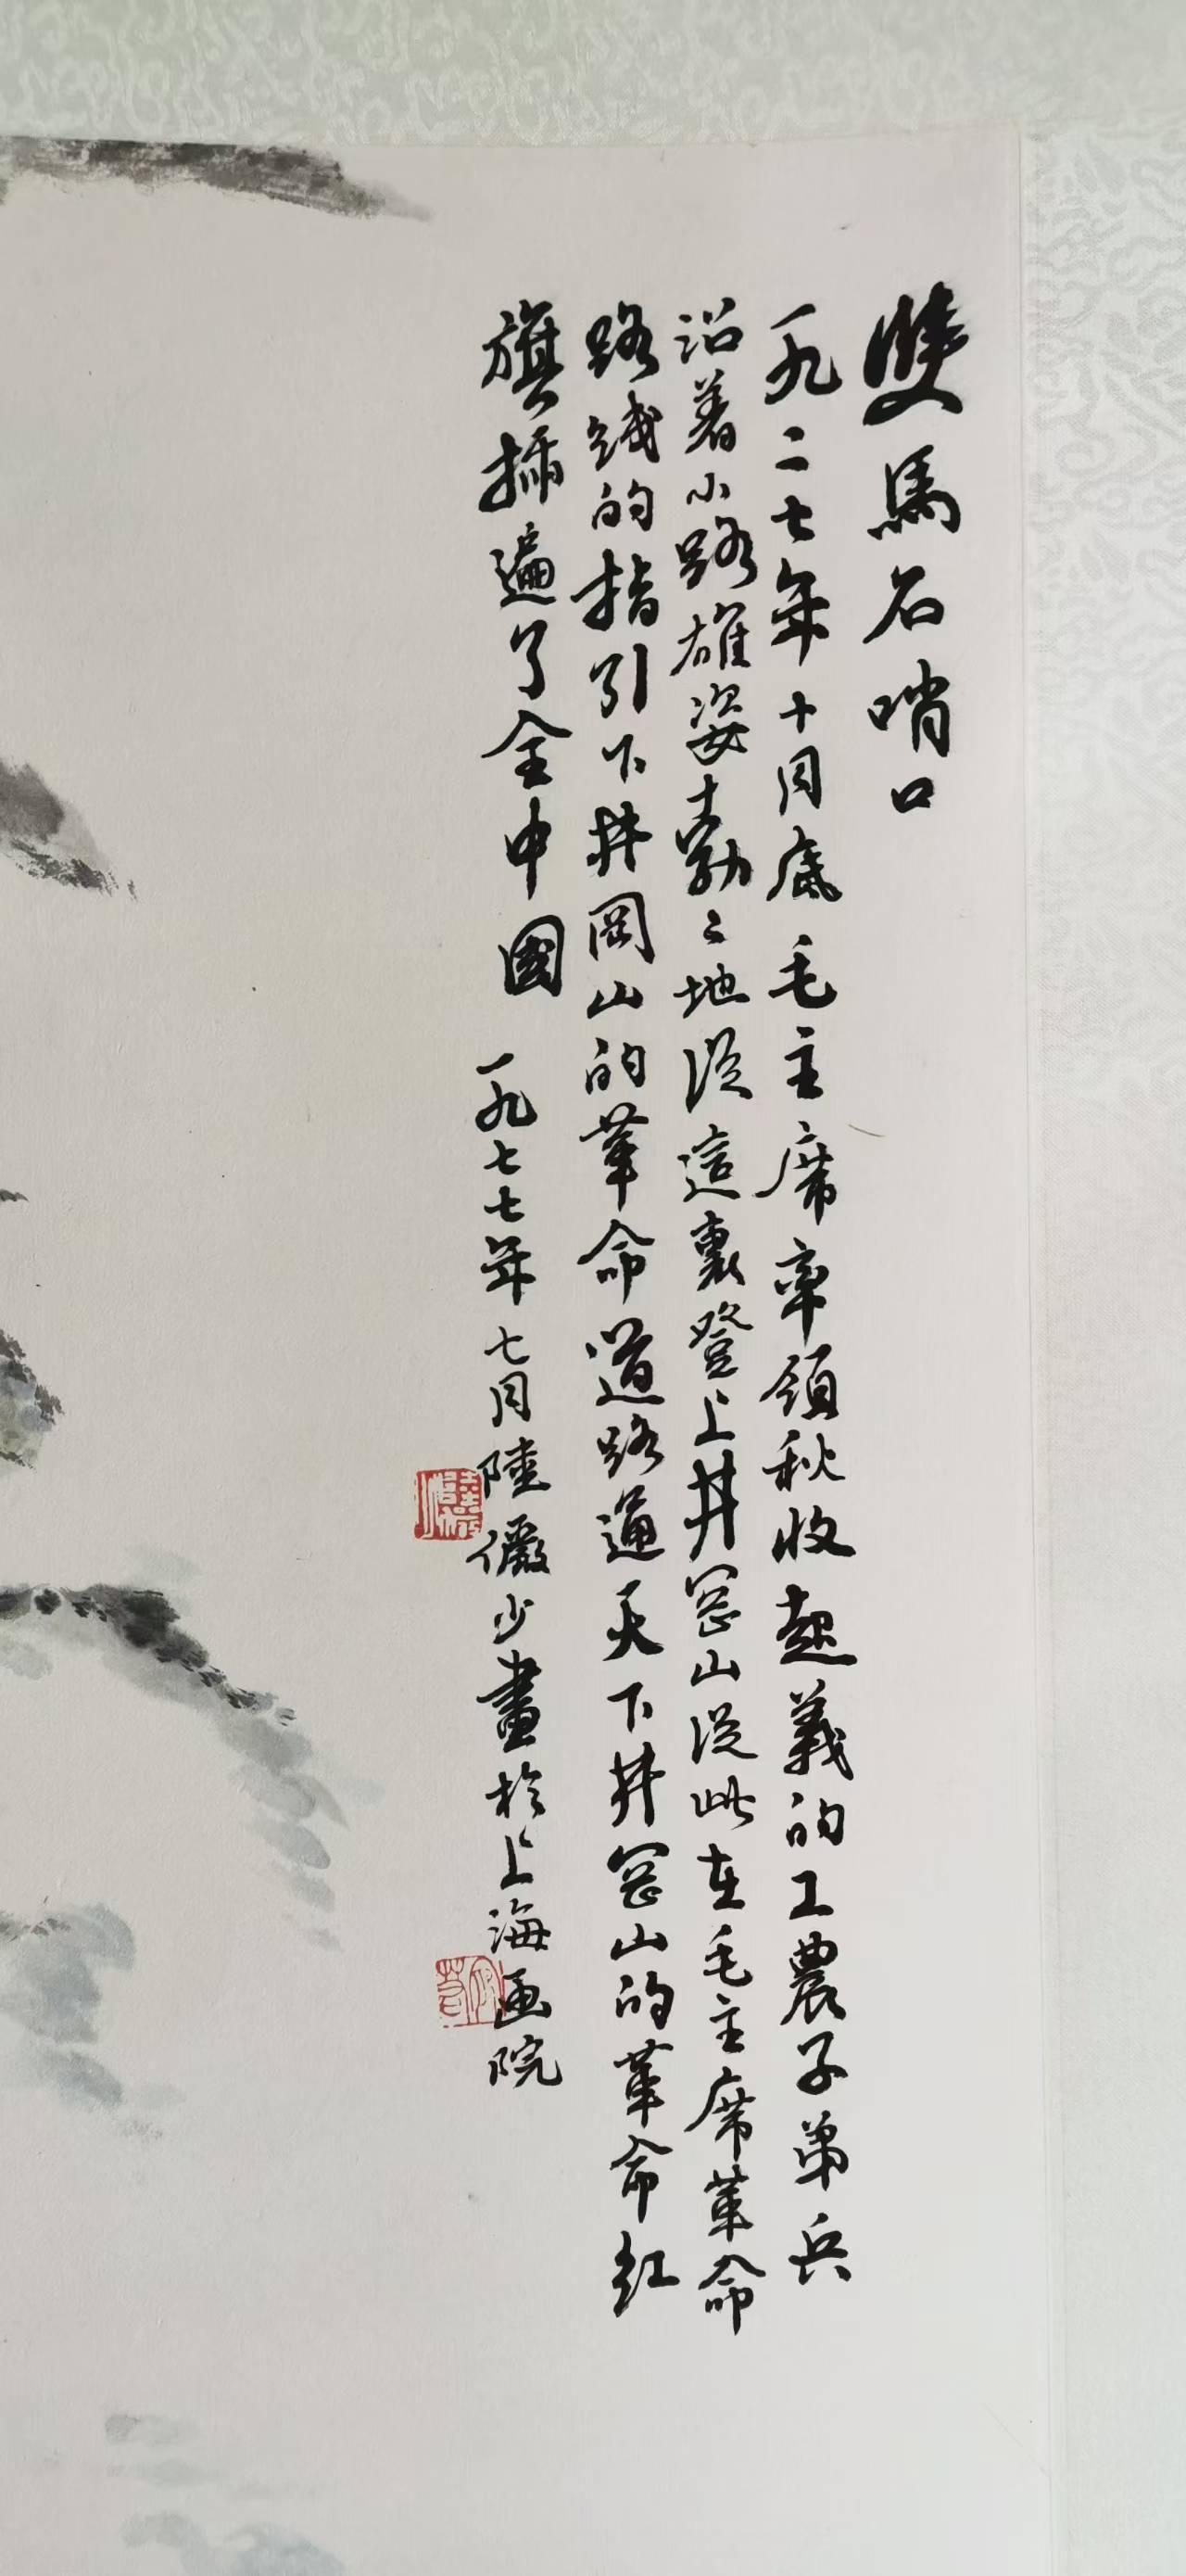 雙馬石哨口
一九二七年十月底毛主席率領秋收起義的工農子弟兵
沿着小路雄姿勃〻地從這裏登上井罡山從此在毛主席革命
路綫的指引下井岡山的革命道路通天下井罡山的革命紅
旗插遍了全中國 一九七七年七月陸儼少畫於上海画院